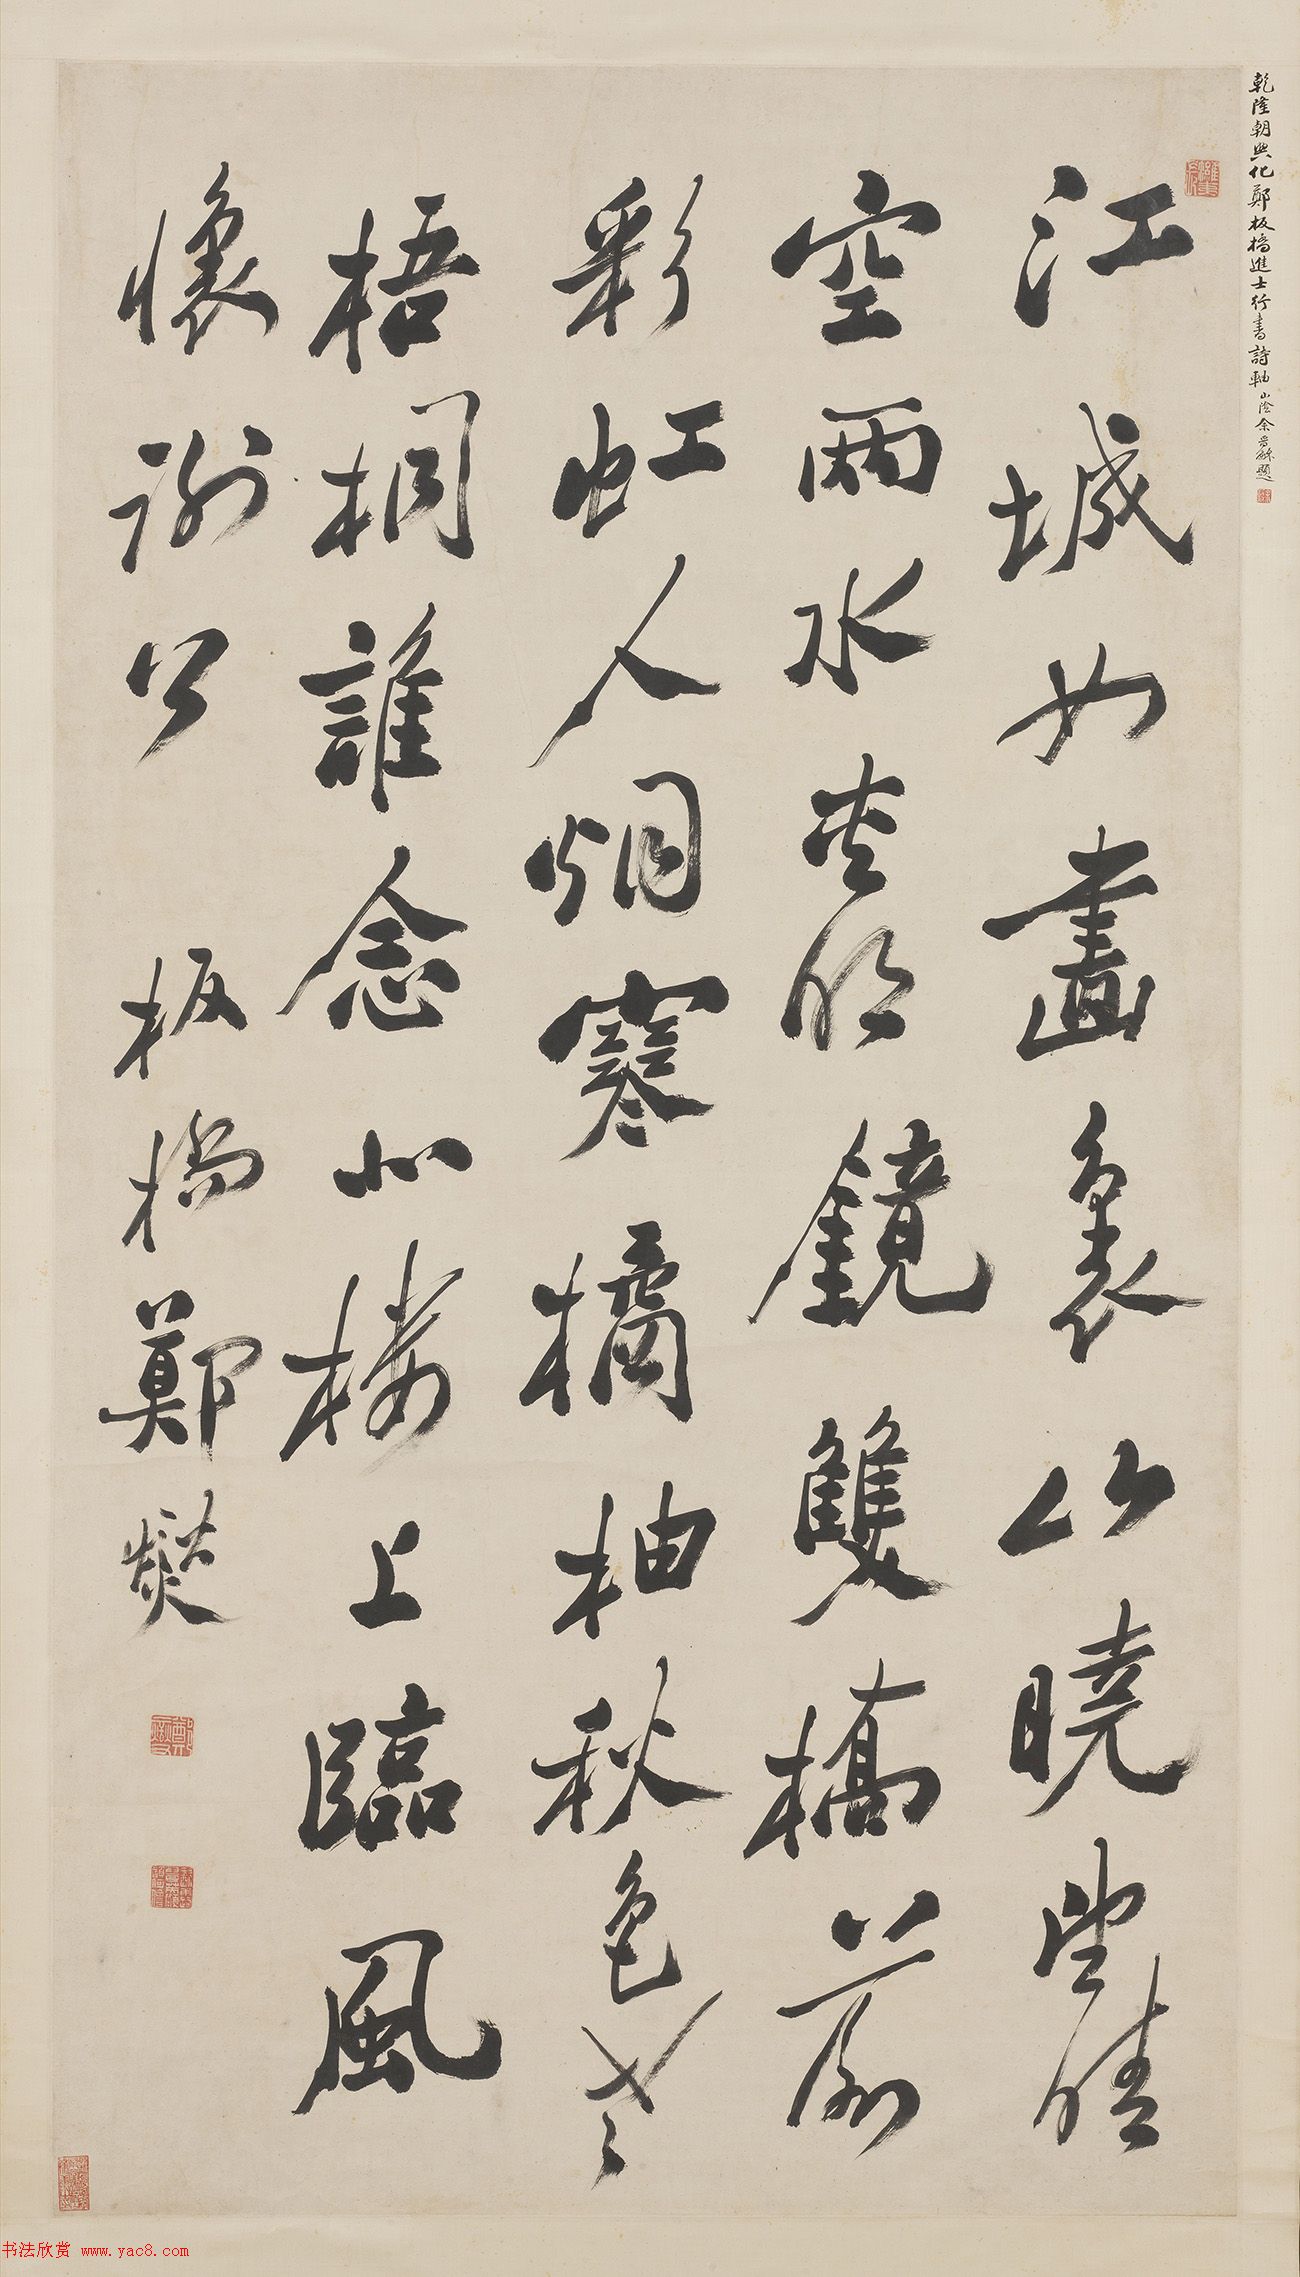 乾隆朝興化鄭板橋進士行書詩軸 山陰余晉龢題
江城如畫裏山曉望晴
空雨水夾明鏡雙橋落
彩虹人烟寒橘柚秋色老
梧桐誰念北樓上臨風
懷謝公 板橋鄭燮
书法欣赏 www.yac8.com